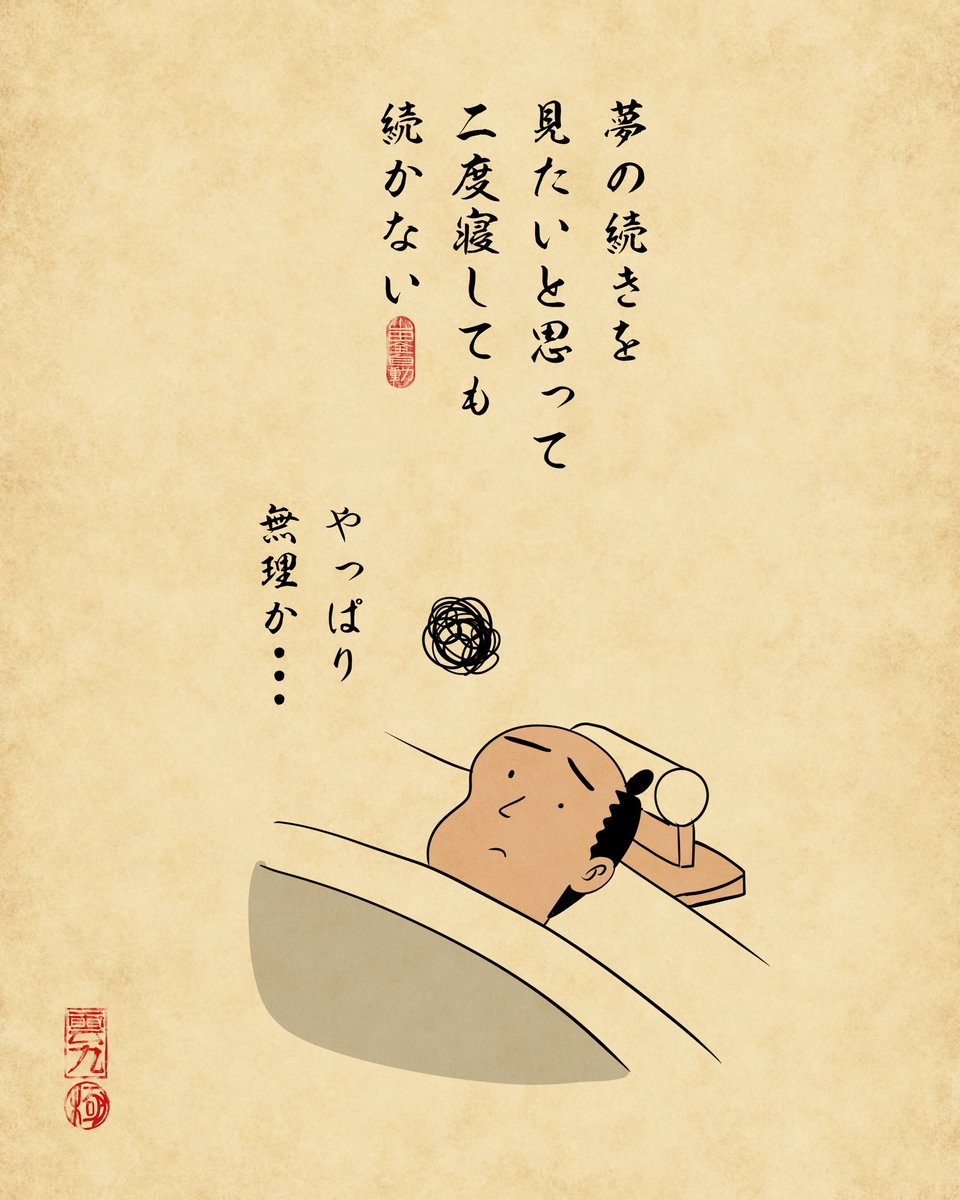 夢の続きを
見たいと思って
二度寝しても
続かない
やっぱり
無理か・・・